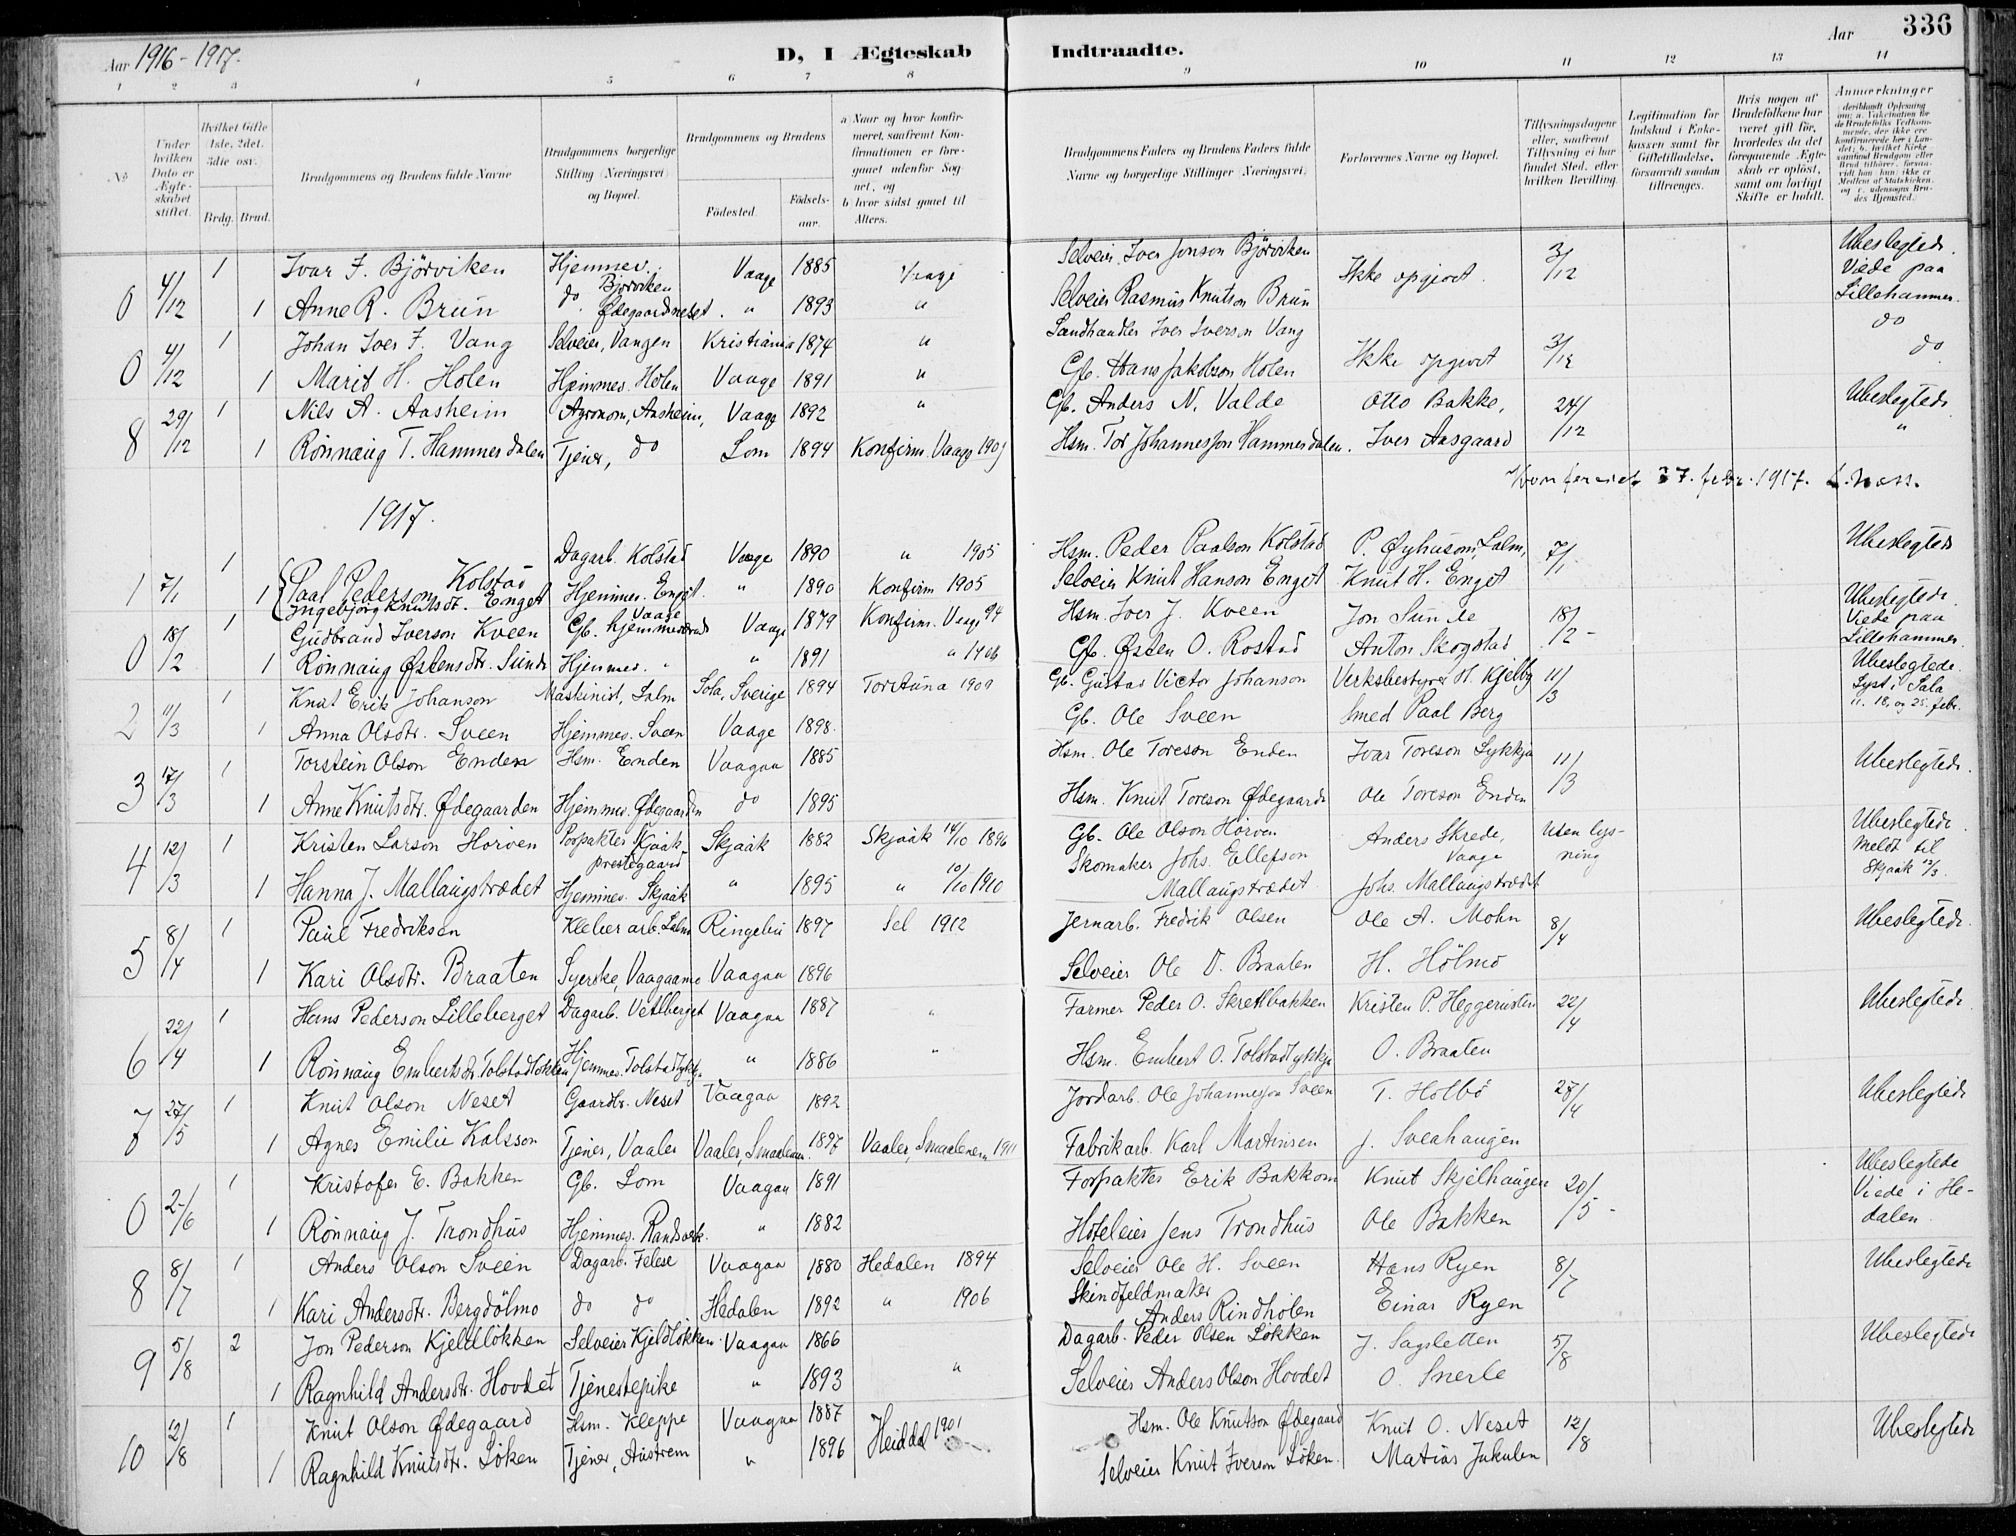 Aar 1916-1917.
D, I Ægteskab Indtraadte.
Aar 336
1 2 3 4 5 6 7 8 9 10 11 12 13 14
No
Under hvilken Dato er Ægteskabet stiftet.
Hvilket Gifte 1ste, 2det, 3die osv.
Brdg. Brud.
Brudgommens og Brudens fulde Navne
Brudgommens borgerlige Stilling (Næringsvei) og Bopæl.
Brudgommens og Brudens
Fødested. Fødselsaar.
a) Naar og hvor konfirmeret, saafremt Konfirmationen er foregaaet udenfor Sognet, og
b) hvor sidst gaaet til Alters.
Brudgommens Faders og Brudens Faders fulde Navne og borgerlige Stillinger (Næringsvei)
Forlovernes Navne og Bopæl.
Tillysningsdagene eller, saafremt Tillysning ei har fundet Sted, efter hvilken Bevilling.
Legitimation for Indskud i Enkekassen samt for Giftetilladelse, forsaavidt saadan tiltrænges.
Hvis nogen af Brudefolkene har været gift før, hvorledes da det foregaaende Ægteskab er opløst, samt om lovligt Skifte er holdt.
Anmærkninger
deriblandt Oplysning om: a. Vakcination for de Brudefolks Vedkommende, der ikke ere konfirmerede her i Landet; b. hvilket Kirkesamfund Brudgom eller Brud tilhører, forsaavidt han (hun) ikke er Medlem af Statskirken, og c. udensogns Brudes Hjemsted.
0 4/12 1 Ivar I. Bjørviken Hjemmev. Bjørviken Vaage 1885 Vaage Selveier Iver Jonson Bjørviken Ikke opgivet 3/12 Ubeslegtede. Viede paa Lillehammer.
1 Anne R. Brun do. Ødegaardneset " 1893 " Selveier Rasmus Knutson Brun
0 4/12 1 Johan Iver I. Vang Selveier, Vangen Kristiania 1874 " Landhandler Iver Iverson Vang Ikke opgivet 3/12 do
1 Marit H. Holen Hjemmev. Holen Vaage 1891 " Gb. Hans Jakobson Holen do
8 29/12 1 Nils A. Aasheim Agronom, Aasheim, Vaage 1892 " Gb. Anders N. Valde Otto Bakke, 24/12 Ubeslegtede
1 Rønnaug T. Hammerdalen Tjener, do Lom 1894 Konfirm. Vaage 1909 Hsm. Tor Johannesson Hammerdalen. Iver Aasgaard "
Konfereret 27. febr. 1917.
1917.
1 7/1 1 Paal Pederson Kolstad Dagarb. Kolstad Vaage 1890 " 1905 Hsm. Peder Paalson Kolstad P. Øyhusom, Lalm, 7/1 Ubeslegtede
1 Ingebjørg Knutsdt. Enget Hjemmev. Enget " 1890 Konfirm 1905 Selveier Knut Hanson Enget Knut H. Enget
0 18/2 1 Gudbrand Iverson Kveen Gb. Vaage 1879 Konfirm. Vaage 94 Hsm. Iver J. Kveen Jon Sunde 18/2 Ubeslegtede. Viede paa Lillehammer.
1 Rønnaug Østensdtr. Sunde Hjemmev. " " 1891 " 1906 Gb. Østen O. Rostad Anton Skogstad
2 11/3 1 Knut Erik Johanson Maskinist, Lalm Sala, Sverige 1894 Tortuna 1909 Gb. Gustav Victor Johanson Verksbestyrer H. Kjelby 11/3 Ubeslegtede. Lyst i Sala 11. 18. og 25. febr.
1 Anna Olsdtr. Sveen Hjemmev. Sveen Vaage 1898. Gb. Ole Sveen Smed Paal Berg
3 17/3 1 Torstein Olson Enden Hsm. Enden Vaagaa 1885 Hsm. Ole Toreson Enden Ivar Toreson Lykkja 11/3 Ubeslegtede.
1 Anne Knutsdtr. Ødegaarden Hjemmev. Ødegaarden do 1895 Hsm. Knut Toreson Ødegaarde Ole Toreson Enden
4 12/3 1 Kristen Larson Horven Forpakter Skjaak prestegaard Skjaak 1882 Skjaak 14/10 1896 Gb. Ole Olson Horven Anders Skrede, Vaage Uten lysning Ubeslegtede. Meldt til Skjaak 12/3.
1 Hanna J. Mallaugstrædet Hjemmev. Skjaak " 1895 " 10/10 1910 Skomaker Johs. Ellefson Mallaugstrædet Johs. Mallaugstrædet
5 8/4 1 Paul Fredriksen Kleberarb. Lalm Ringebu 1897 Sel 1912 Jernarb. Fredrik Olsen Ole A. Mohn 8/4 Ubeslegtede.
1 Kari Olsdtr. Braaten Syerske, Vaagaamo Vaagaa 1896 Selveier Ole O. Braaten H. Hølmo
6 22/4 1 Hans Pederson Lilleberget Dagarb. Vetlberget Vaagaa 1887 " Farmer Peder O. Skrettbakken Kristen P. Heggerusten 22/4 Ubeslegtede
1 Rønnaug Embertsdtr. Tolstadløkken Hjemmev. Tolstadlykj. " 1886 " Hsm. Embert O. Tolstadlykkja O. Braaten
7 27/5 1 Knut Olson Neset Gaardbr. Neset Vaagaa 1892 Jordarb. Ole Johanneson Sveen T. Holbø 27/4 Ubeslegtede
1 Agnes Emilie Kalsson Tjener, Vaaler Vaaler, Smaalenene 1897 Vaaler, Smaalenene 1911 Fabrikarb. Karl Martinsen J. Sveahaugen
0 2/6 1 Kristofer E. Bakken Gb. Lom Vaagaa 1891 Forpakter Erik Bakkom Knut Skjelhaugen 20/5 Ubeslegtede Viede i Hedalen.
1 Rønnaug J. Trondhus Hjemmev. Randsverk. " 1882 Hoteleier Jens Trondhus Ole Bakken
8 8/7 1 Anders Olson Sveen Dagarb. Felese Vaagaa 1880 Hedalen 1894 Selveier Ole H. Sveen Hans Ryen 8/7 Ubeslegtede
1 Kari Andersdtr. Bergdølmo do do Hedalen 1892 " 1906 Skindfeldmaker Anders Rindhølen Einar Ryen
9 5/8 2 Jon Pederson Kjeldløkken Selveier Kjeldløkken Vaagaa 1866 Dagarb. Peder Olsen Løkken J. Sagsletten 5/8 Ubeslegtede
1 Ragnhild Andersdtr. Hovdet Tjenestepike " 1893 " Selveier Anders Olson Hovdet O. Snerle
10 12/8 1 Knut Olson Ødegaard Hsm. Kleppe Vaagaa 1887 Heidal 1901 Hsm. Ole Knutson Ødegaard Knut O. Neset 12/8 Ubeslegtede
1 Ragnhild Knutsdtr. Løken Tjener, Austrem " 1896 Selveier Knut Iverson Løken. Matias Jukulen